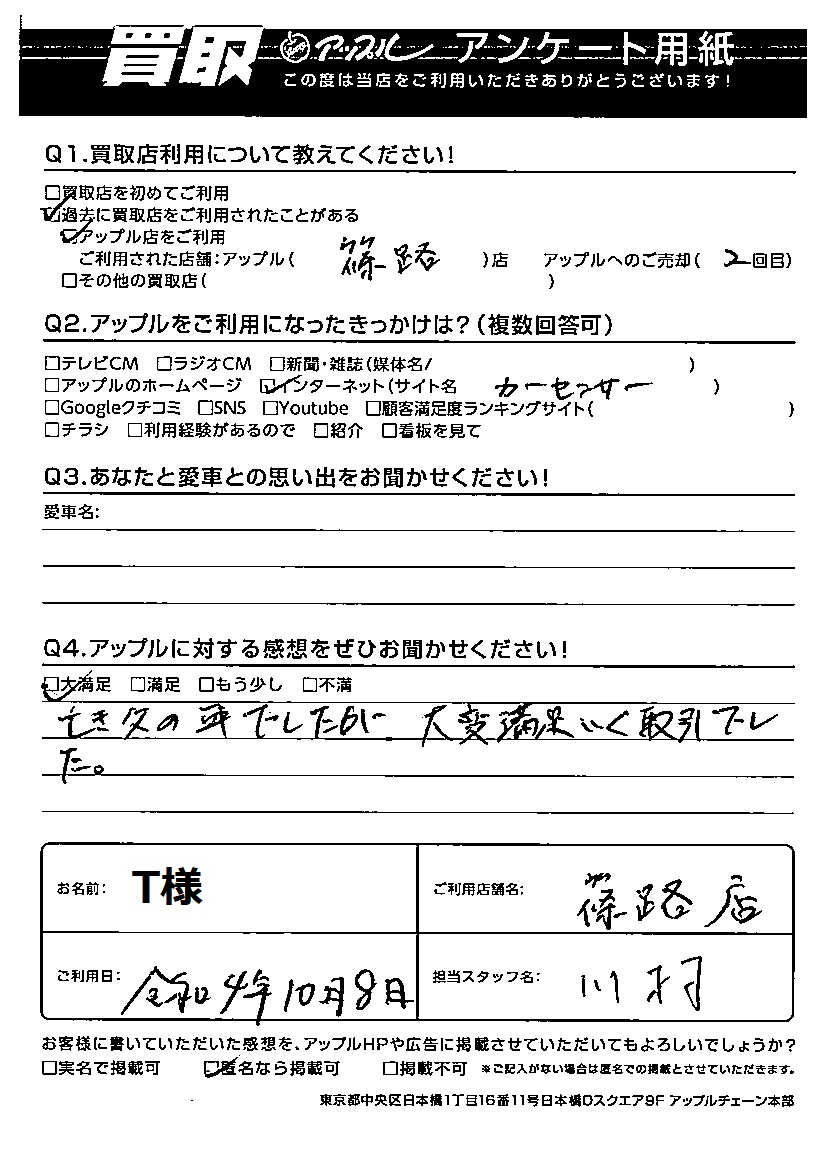 買取 アップル アンケート用紙
この度は当店をご利用いただきありがとうございます!
Q1.買取店利用について教えてください!
□買取店を初めてご利用
☑過去に買取店をご利用されたことがある
☑アップル店をご利用
ご利用された店舗:アップル( 篠路 )店 アップルへのご売却( 2回目)
□その他の買取店( )
Q2.アップルをご利用になったきっかけは?(複数回答可)
□テレビCM □ラジオCM □新聞・雑誌(媒体名/ )
□アップルのホームページ ☑インターネット(サイト名 カーセンサー )
□Googleクチコミ □SNS □Youtube □顧客満足度ランキングサイト( )
□チラシ □利用経験があるので □紹介 □看板を見て
Q3.あなたと愛車との思い出をお聞かせください!
愛車名:
Q4.アップルに対する感想をぜひお聞かせください!
☑大満足 □満足 □もう少し □不満
の車でしたが 大変満足いく取引でし
た。
お名前: T様 ご利用店舗名: 篠路店
ご利用日: 令和4年10月8日 担当スタッフ名: 川村
お客様に書いていただいた感想を、アップルHPや広告に掲載させていただいてもよろしいでしょうか?
□実名で掲載可 ☑匿名なら掲載可 □掲載不可 ※ご記入がない場合は匿名での掲載とさせていただきます。
東京都中央区日本橋1丁目16番11号日本橋Dスクエア9F アップルチェーン本部